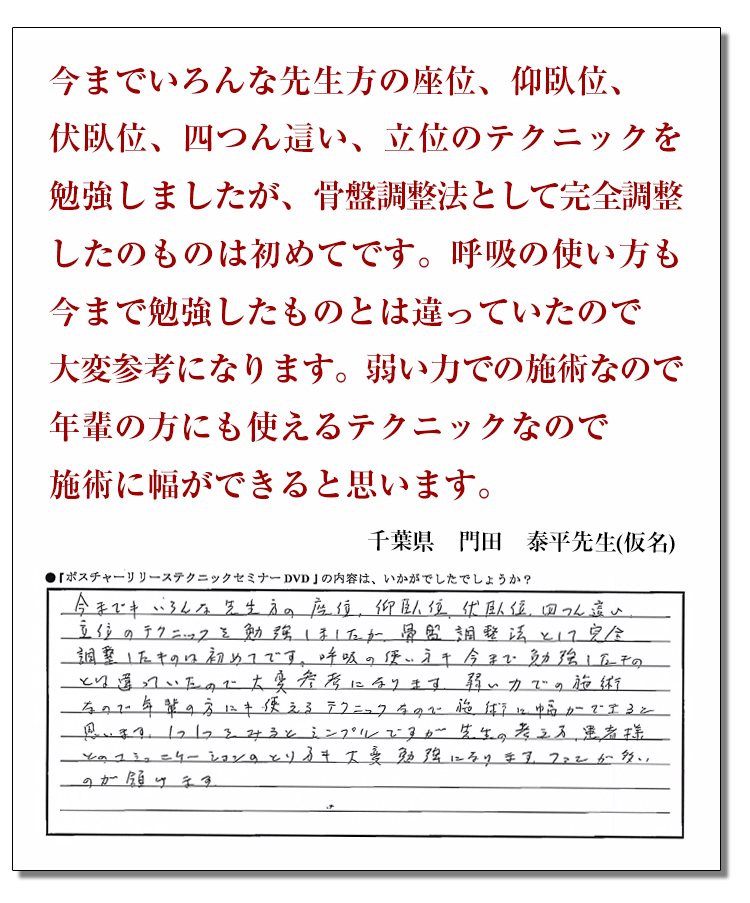 今までいろんな先生方の座位、仰臥位、
伏臥位、四つん這い、立位のテクニックを
勉強しましたが、骨盤調整法として完全調整
したのものは初めてです。呼吸の使い方も
今まで勉強したものとは違っていたので
大変参考になります。弱い力での施術なので
年輩の方にも使えるテクニックなので
施術に幅ができると思います。
千葉県　門田　泰平先生(仮名)
●『ポスチャーリリーステクニックセミナーDVD』の内容は、いかがでしたでしょうか？
今までキいろんな先生方の座位、仰臥位、伏臥位、四つん這い、
立位のテクニックを勉強しましたが、骨盤調整法として完全
調整したものは初めてです。呼吸の使い方も今まで勉強したもの
とは違っていたので大変参考になります。弱い力での施術
なので年輩の方にも使えるテクニックなので施術に幅ができると
思います。1つ1つをみるとシンプルですが先生の考え方、患者様
とのコミュニケーションのとり方も大変勉強になります。ファンが多い
のが頷けます。